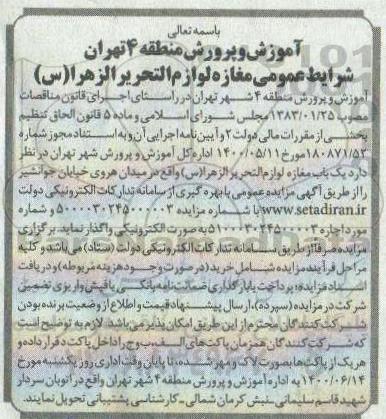 باسمه تعالی
آموزش و پرورش منطقه ۴ تهران
شرایط عمومی مغازه لوازم التحریر الزهرا (س)
آموزش و پرورش منطقه ۴ شهر تهران در راستای اجرای قانون مناقصات
مصوب ۱۳۸۳/۰۱/۲۵ مجلس شورای اسلامی و ماده ۵ قانون الحاق تنظیم
بخشی از مقررات مالی دولت ۲ و آیین نامه اجرایی آن و به استناد مجوز شماره
۱۸۰۸۷۱/۵۳ مورخ ۱۴۰۰/۰۵/۱۱ اداره کل آموزش و پرورش شهر تهران در نظر
دارد یک باب مغازه لوازم التحریر الزهرا (س) واقع در میدان هروی خیابان جوانشیر
را از طریق آگهی مزایده عمومی با بهره گیری از سامانه تدارکات الکترونیکی دولت
www.setadiran.ir با شماره مزایده ۵۰۰۰۰۳۰۲۴۵۰۰۰۰۰۲ و شماره
مورد اجاره ۵۱۰۰۰۰۳۰۲۴۵۰۰۰۰۳ به صورت الکترونیکی واگذار نماید. برگزاری
مزایده صرفاً از طریق سامانه تدارکات الکترونیکی دولت (ستاد) می باشد و کلیه
مراحل فرآیند مزایده شامل خرید (در صورت وجود هزینه مربوطه) و دریافت
اسناد مزایده؛ پرداخت یا بارگذاری ضمانت نامه بانکی یا فیش واریزی تضمینی
شرکت در مزایده (سپرده)، ارسال پیشنهاد قیمت و اطلاع از وضعیت برنده بودن
شرکت کنندگان محترم از این طریق امکان پذیر می باشد. لازم به توضیح است
که شرکت کنندگان همزمان پاکت های الف، ب و ج را داخل پاکت د قرار داده و
هر یک از پاکت ها بصورت لاک و مهر شده، تا پایان وقت اداری روز یکشنبه مورخ
۱۴۰۰/۰۶/۱۴ به اداره آموزش و پرورش منطقه ۴ شهر تهران واقع در اتوبان سردار
شهید قاسم سلیمانی نبش کرمان شمالی - کارشناسی پشتیبانی تحویل نمایند.